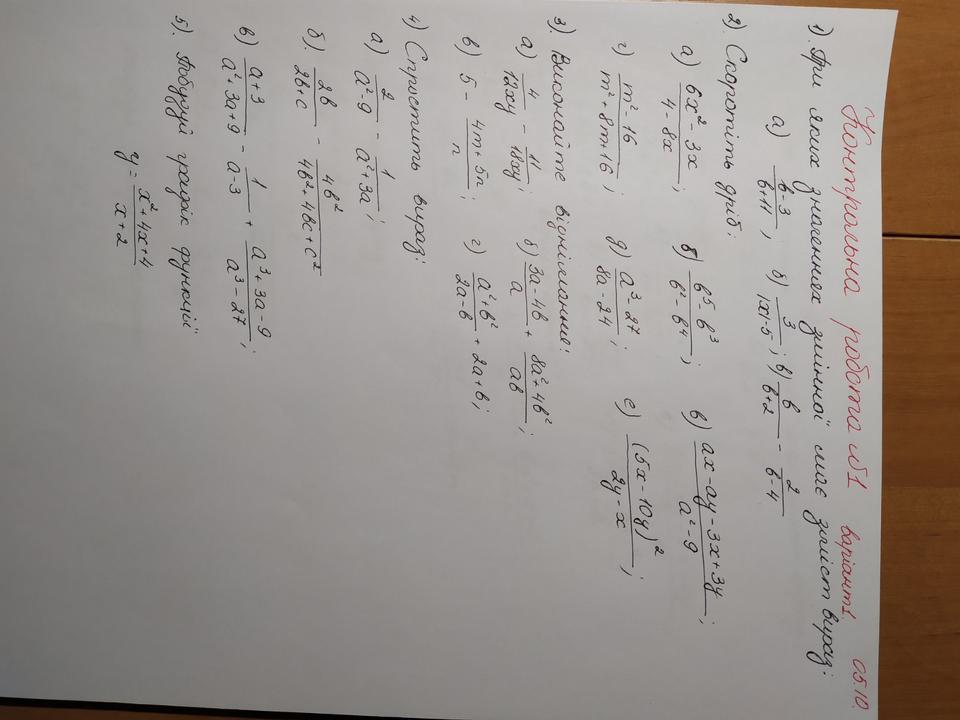 Контрольна робота №1 варіант1. 05.10.
1). При яких значеннях змінної має зміст вираз:
а) (b-3)/(b+11); б) 3/(|x|-5); в) b/(b+2) - 2/(b-4)
2). Скоротіть дріб:
а) (6x²-3x)/(4-8x); б) (b⁵-b³)/(b²-b⁴); в) (ax-ay-3x+3y)/(a²-9);
г) (m²-16)/(m²+8m+16); д) (a³-27)/(8a-24); е) (5x-10y)²/(2y-x);
3). Виконайте віднімання:
а) 4/(12xy) - 11/(18xy); б) (3a-4b)/a + (8a²+4b²)/(ab);
в) 5 - (4m+5n)/n; г) (a²+b²)/(2a-b) + 2a+b;
4) Спростить вираз:
а) 2/(a²-9) - 1/(a²+3a);
б). 2b/(2b+c) - 4b²/(4b²+4bc+c²)
в) (a+3)/(a²+3a+9) - 1/(a-3) + (a³+3a-9)/(a³-27);
5). Побудуй графік функції
y = (x²+4x+4)/(x+2)